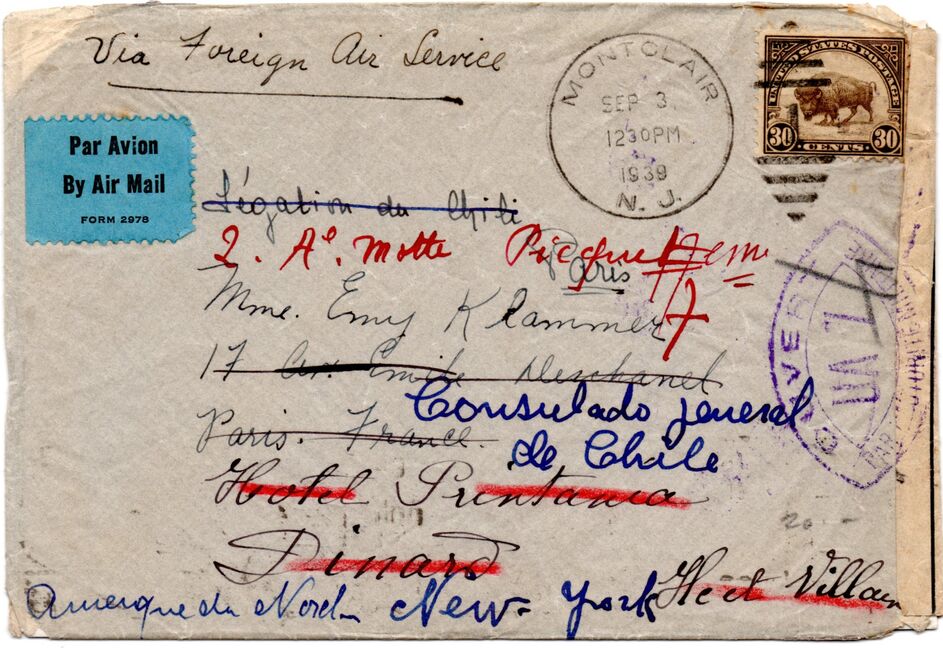 Via Foreign Air Service
MONTCLAIR
SEP 3.
1230 PM
1939
N. J.
UNITED STATES POSTAGE
30 30
CENTS
Par Avion
By Air Mail
FORM 2978
Légation du Chili
2. Ae. Motte Picquet
Paris 7
Mme. Emy Klammer
17 av. Emile Deschanel
Paris. France.
Consulado general
de Chile
Hotel Printania
Dinard
Amerique du Nord New-York
OUVERT